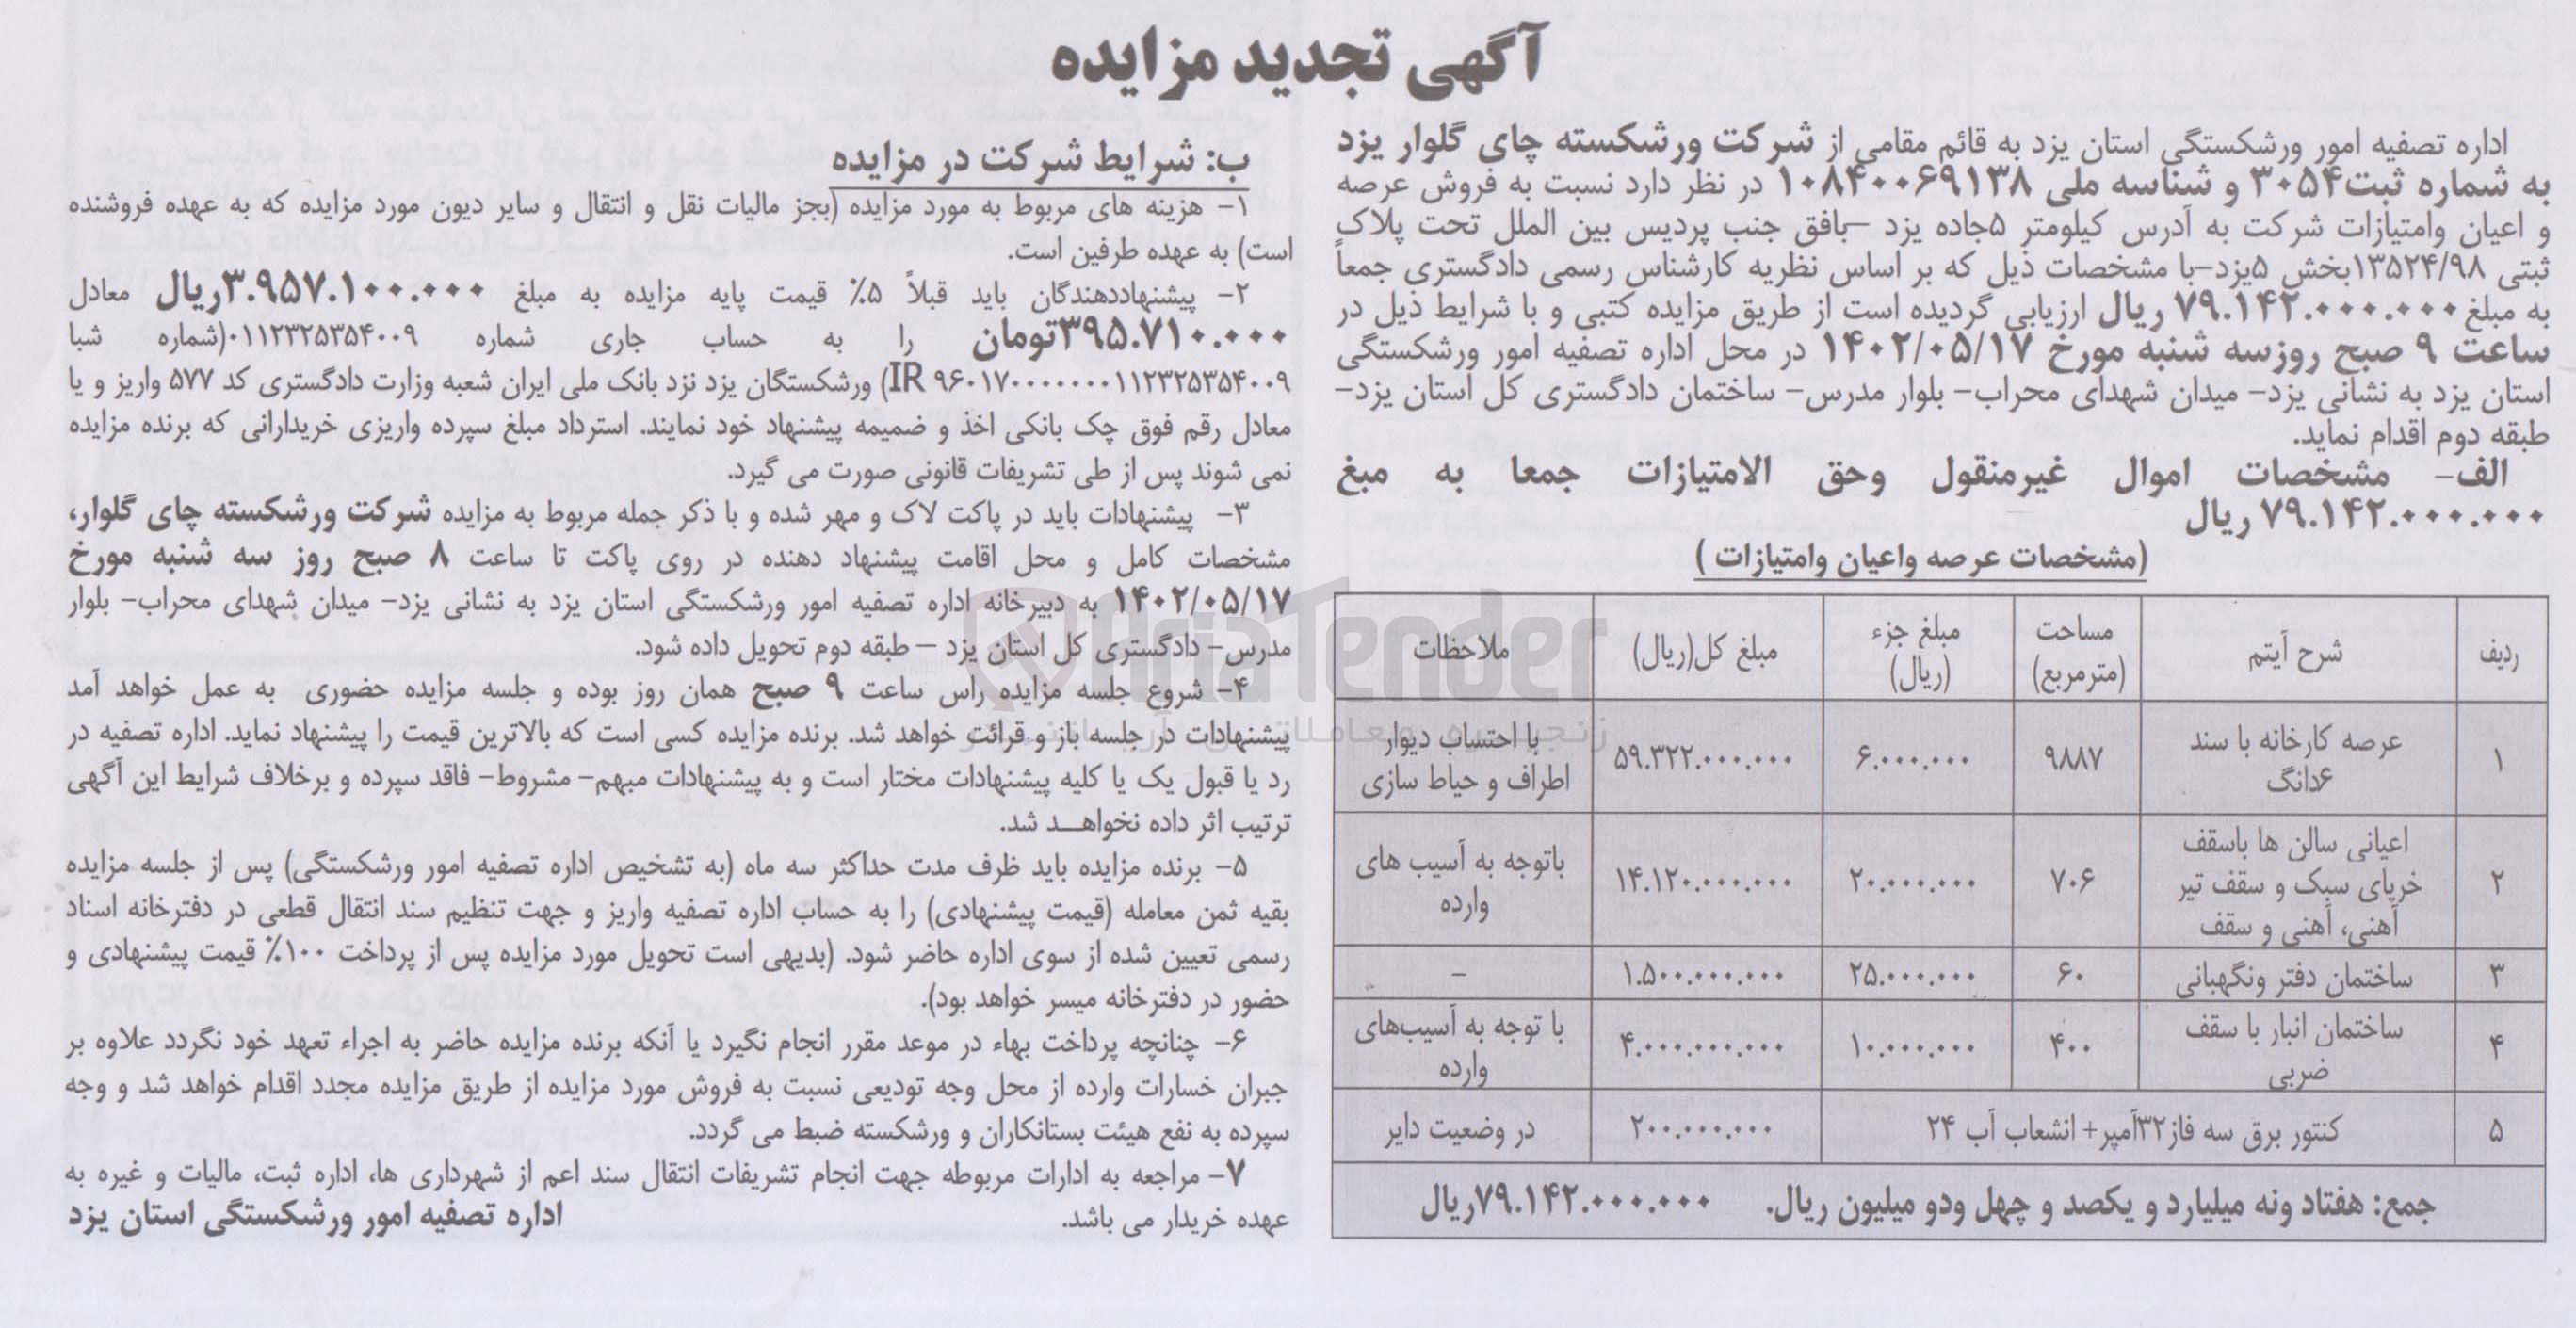 آگهی تجدید مزایده
اداره تصفیه امور ورشکستگی استان یزد به قائم مقامی از شرکت ورشکسته چای گلوار یزد
به شماره ثبت۳۰۵۴ و شناسه ملی ۱۰۸۴۰۰۶۹۱۳۸ در نظر دارد نسبت به فروش عرصه
و اعیان وامتیازات شرکت به آدرس کیلومتر ۵جاده یزد –بافق جنب پردیس بین الملل تحت پلاک
ثبتی ۱۳۵۲۴/۹۸بخش ۵یزد-با مشخصات ذیل که بر اساس نظریه کارشناس رسمی دادگستری جمعاً
به مبلغ۷۹.۱۴۲.۰۰۰.۰۰۰ ریال ارزیابی گردیده است از طریق مزایده کتبی و با شرایط ذیل در
ساعت ۹ صبح روزسه شنبه مورخ ۱۴۰۲/۰۵/۱۷ در محل اداره تصفیه امور ورشکستگی
استان یزد به نشانی یزد- میدان شهدای محراب- بلوار مدرس- ساختمان دادگستری کل استان یزد-
طبقه دوم اقدام نماید.
الف- مشخصات اموال غیرمنقول وحق الامتیازات جمعا به مبغ
۷۹.۱۴۲.۰۰۰.۰۰۰ ریال
(مشخصات عرصه واعیان وامتیازات )
ردیف	شرح آیتم	مساحت (مترمربع)	مبلغ جزء (ریال)	مبلغ کل(ریال)	ملاحظات
۱	عرصه کارخانه با سند ۶دانگ	۹۸۸۷	۶.۰۰۰.۰۰۰	۵۹.۳۲۲.۰۰۰.۰۰۰	با احتساب دیوار اطراف و حیاط سازی
۲	اعیانی سالن ها باسقف خرپای سبک و سقف تیر آهنی، آهنی و سقف	۷۰۶	۲۰.۰۰۰.۰۰۰	۱۴.۱۲۰.۰۰۰.۰۰۰	باتوجه به آسیب های وارده
۳	ساختمان دفتر ونگهبانی	۶۰	۲۵.۰۰۰.۰۰۰	۱.۵۰۰.۰۰۰.۰۰۰	-
۴	ساختمان انبار با سقف ضربی	۴۰۰	۱۰.۰۰۰.۰۰۰	۴.۰۰۰.۰۰۰.۰۰۰	با توجه به آسیب‌های وارده
۵	کنتور برق سه فاز۳۲آمپر+ انشعاب آب ۲۴	۲۰۰.۰۰۰.۰۰۰	در وضعیت دایر
جمع: هفتاد ونه میلیارد و یکصد و چهل ودو میلیون ریال. ۷۹.۱۴۲.۰۰۰.۰۰۰ریال
ب: شرایط شرکت در مزایده
۱- هزینه های مربوط به مورد مزایده (بجز مالیات نقل و انتقال و سایر دیون مورد مزایده که به عهده فروشنده
است) به عهده طرفین است.
۲- پیشنهاددهندگان باید قبلاً ۵٪ قیمت پایه مزایده به مبلغ ۳.۹۵۷.۱۰۰.۰۰۰ریال معادل
۳۹۵.۷۱۰.۰۰۰تومان را به حساب جاری شماره ۰۱۱۲۳۲۵۳۵۴۰۰۹(شماره شبا
IR ۹۶۰۱۷۰۰۰۰۰۰۰۱۱۲۳۲۵۳۵۴۰۰۹) ورشکستگان یزد نزد بانک ملی ایران شعبه وزارت دادگستری کد ۵۷۷ واریز و یا
معادل رقم فوق چک بانکی اخذ و ضمیمه پیشنهاد خود نمایند. استرداد مبلغ سپرده واریزی خریدارانی که برنده مزایده
نمی شوند پس از طی تشریفات قانونی صورت می گیرد.
۳- پیشنهادات باید در پاکت لاک و مهر شده و با ذکر جمله مربوط به مزایده شرکت ورشکسته چای گلوار،
مشخصات کامل و محل اقامت پیشنهاد دهنده در روی پاکت تا ساعت ۸ صبح روز سه شنبه مورخ
۱۴۰۲/۰۵/۱۷ به دبیرخانه اداره تصفیه امور ورشکستگی استان یزد به نشانی یزد- میدان شهدای محراب- بلوار
مدرس- دادگستری کل استان یزد – طبقه دوم تحویل داده شود.
۴- شروع جلسه مزایده راس ساعت ۹ صبح همان روز بوده و جلسه مزایده حضوری به عمل خواهد آمد
پیشنهادات در جلسه باز و قرائت خواهد شد. برنده مزایده کسی است که بالاترین قیمت را پیشنهاد نماید. اداره تصفیه در
رد یا قبول یک یا کلیه پیشنهادات مختار است و به پیشنهادات مبهم- مشروط- فاقد سپرده و برخلاف شرایط این آگهی
ترتیب اثر داده نخواهـــد شد.
۵- برنده مزایده باید ظرف مدت حداکثر سه ماه (به تشخیص اداره تصفیه امور ورشکستگی) پس از جلسه مزایده
بقیه ثمن معامله (قیمت پیشنهادی) را به حساب اداره تصفیه واریز و جهت تنظیم سند انتقال قطعی در دفترخانه اسناد
رسمی تعیین شده از سوی اداره حاضر شود. (بدیهی است تحویل مورد مزایده پس از پرداخت ۱۰۰٪ قیمت پیشنهادی و
حضور در دفترخانه میسر خواهد بود).
۶- چنانچه پرداخت بهاء در موعد مقرر انجام نگیرد یا آنکه برنده مزایده حاضر به اجراء تعهد خود نگردد علاوه بر
جبران خسارات وارده از محل وجه تودیعی نسبت به فروش مورد مزایده از طریق مزایده مجدد اقدام خواهد شد و وجه
سپرده به نفع هیئت بستانکاران و ورشکسته ضبط می گردد.
۷- مراجعه به ادارات مربوطه جهت انجام تشریفات انتقال سند اعم از شهرداری ها، اداره ثبت، مالیات و غیره به
عهده خریدار می باشد.
اداره تصفیه امور ورشکستگی استان یزد
AriaTender